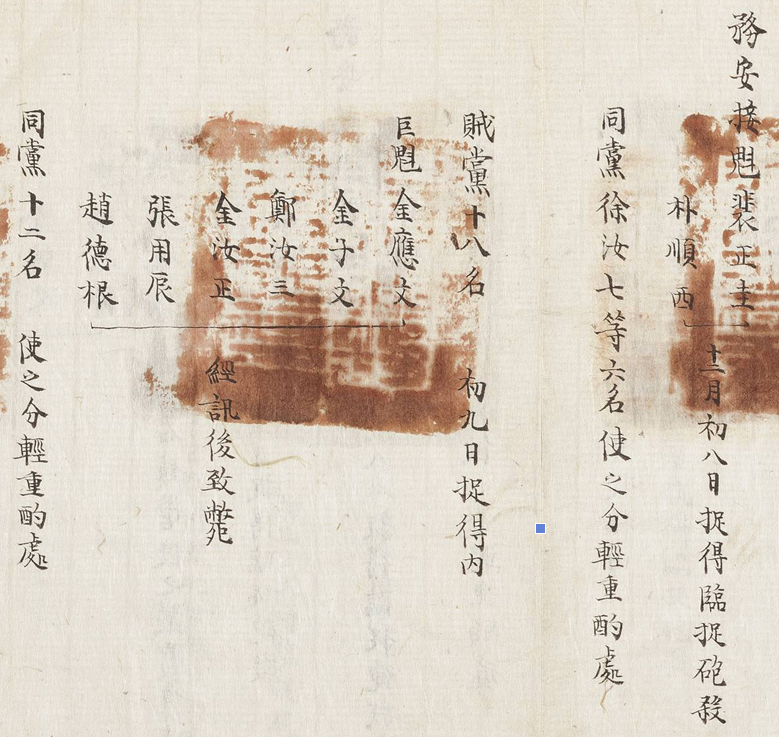 務安接魁裴正圭
朴順西
十二月初八日捉得臨捉砲殺
同黨徐汝七等六名使之分輕重酌處
賊黨十八名 初九日捉得内
巨魁金應文
金子文
鄭汝三
金汝正
張用辰
趙德根
經訊後致斃
同黨十二名 使之分輕重酌處